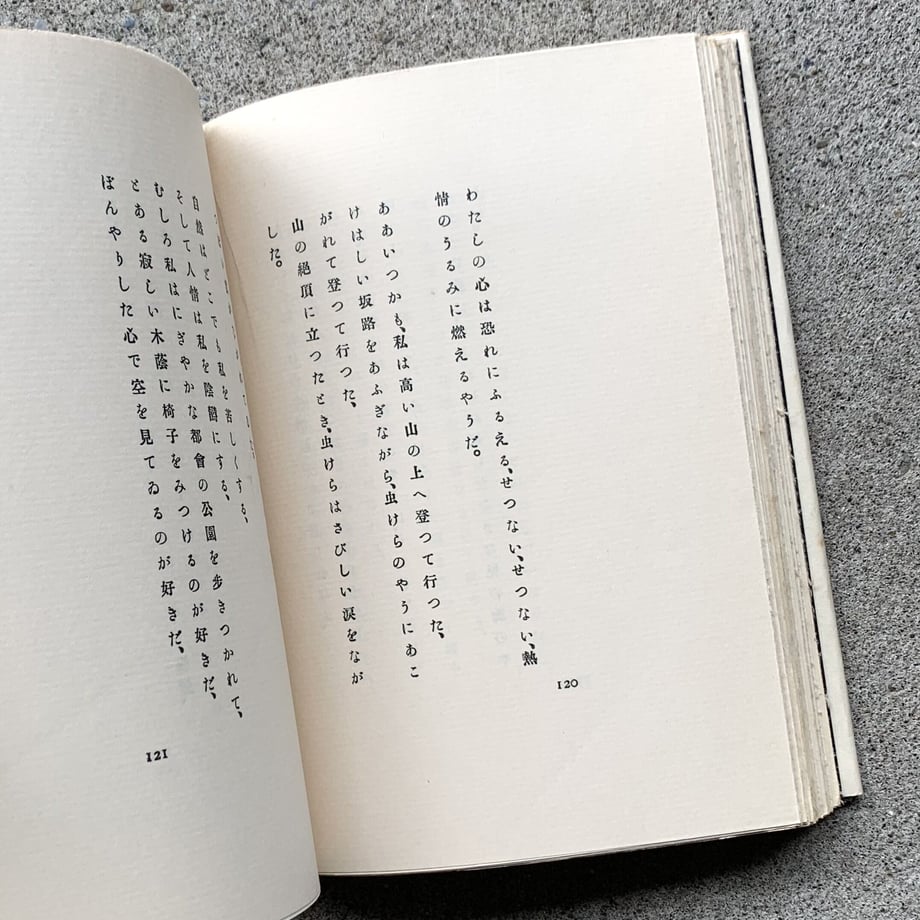 わたしの心は恐れにふるえる、せつない、せつない、熱
情のうるみに燃えるやうだ。
ああいつかも、私は高い山の上へ登つて行つた、
けはしい坂路をあふぎながら、虫けらのやうにあこ
がれて登つて行つた、
山の絶頂に立つたとき、虫けらはさびしい涙をなが
した。
120
自然はどこでも私を苦しくする、
そして人情は私を陰鬱にする、
むしろ私はにぎやかな都會の公園を歩きつかれて、
とある寂しい木蔭に椅子をみつけるのが好きだ、
ぼんやりした心で空を見てゐるのが好きだ、
121